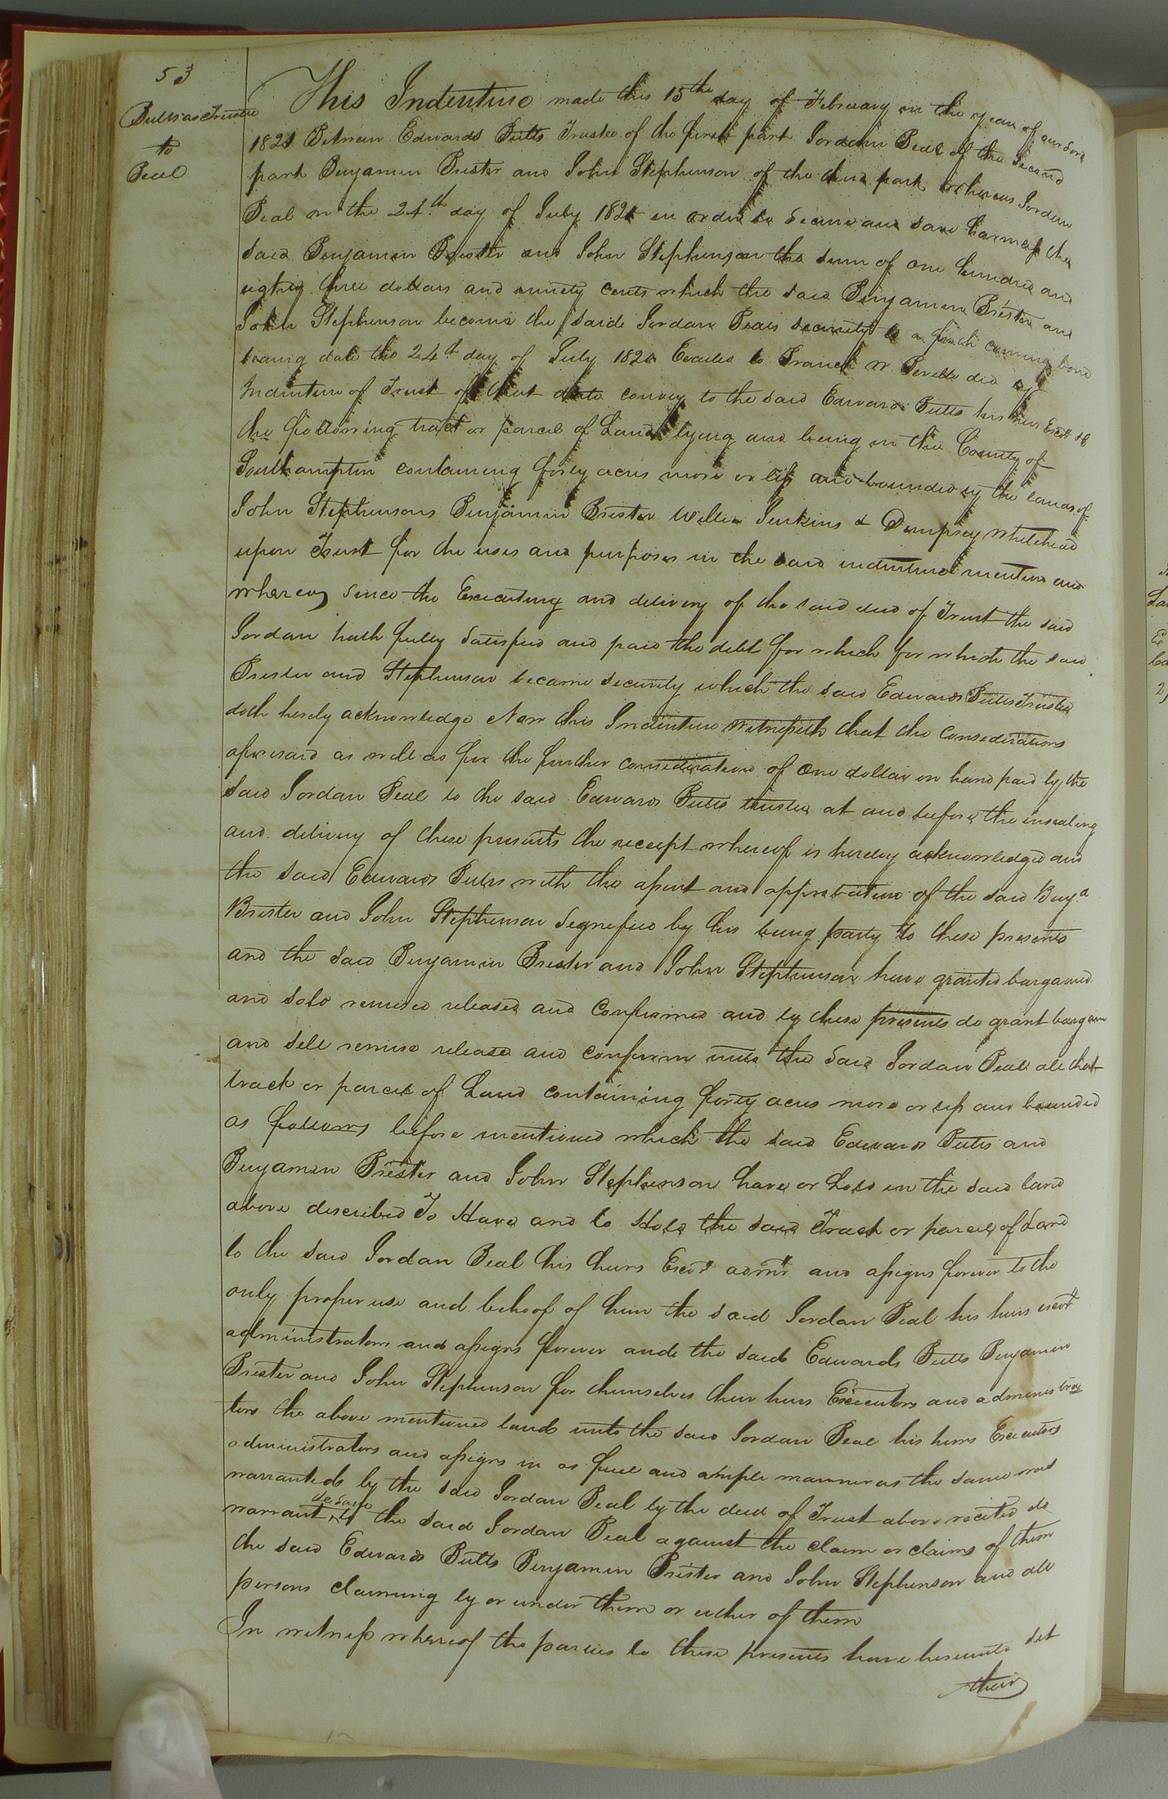 53
Butts as Trustee
to
Beal
This Indenture made this 15th day of February in the year of our Lord
1821 Between Edwards Butts Trustee of the first part Jordan Beal of the Second
part Benjamin Brister and John Stephenson of the third part whereas Jordan
Beal on the 24th day of July 182 in order to Secure and save harmless the
said Benjamin Brister and John Stephenson the sum of one hundred and
eighty three dollars and ninety cents which the said Benjamin Brister and
John Stephenson become the said Jordan Beals security to a forth coming bond
bearing date the 24th day of July 182 to did by
Indenture of Trust of that date convey to the said Edwards Butts his heirs &c
the following tract or parcel of Land lying and being in the County of
Southampton containing forty acres more or less and bounded by the lands of
John Stephensons Benjamin Brister Jenkins & Dempsey Whitehead
upon Trust for the uses and purposes in the said indenture mention and
whereas since the Executing and delivery of the said deed of Trust the said
Jordan hath fully Satisfied and paid the debt for which for which the said
Brister and Stephenson became security which the said Edwards Butts Trustee
doth hereby acknowledge Now this Indenture Witnesseth that the considerations
aforesaid as well as for the further consideration of One dollar in hand paid by the
said Jordan Beal to the said Edwards Butts trustee at and before the ensealing
and delivery of these presents the receipt whereof is hereby acknowledged and
the said Edwards Butts with the assent and approbation of the said Benja
Brister and John Stephenson Segnified by his being party to these presents
and the said Benjamin Brister and John Stephenson have granted bargained
and sold remised released and Confirmed and by these presents do grant bargain
and sell remise release and confirm unto the said Jordan Beal all that
track or parcel of Land containing forty acres more or less and bounded
as follows before mentioned which the said Edwards Butts and
Benjamin Brister and John Stephenson have or hold in the said land
above described To Have and to Hold the said Track or parcel of Land
to the said Jordan Beal his heirs Exors admrs and assigns forever to the
only proper use and behoof of him the said Jordan Beal his heirs exors
administrators and assigns forever and the said Edwards Butts Benjamin
Brister and John Stephenson for themselves their heirs Executors and administra
tors the above mentioned lands unto the said Jordan Beal his heirs Executors
administrators and assigns in as full and ample manner as the same was
warranted by the said Jordan Beal by the deed of Trust above recited do
warrant to the said Jordan Beal against the claim or claims of them
the said Edwards Butts Benjamin Brister and John Stephenson and all
persons claiming by or under them or either of them
In witness whereof the parties to these presents have hereunto set
their